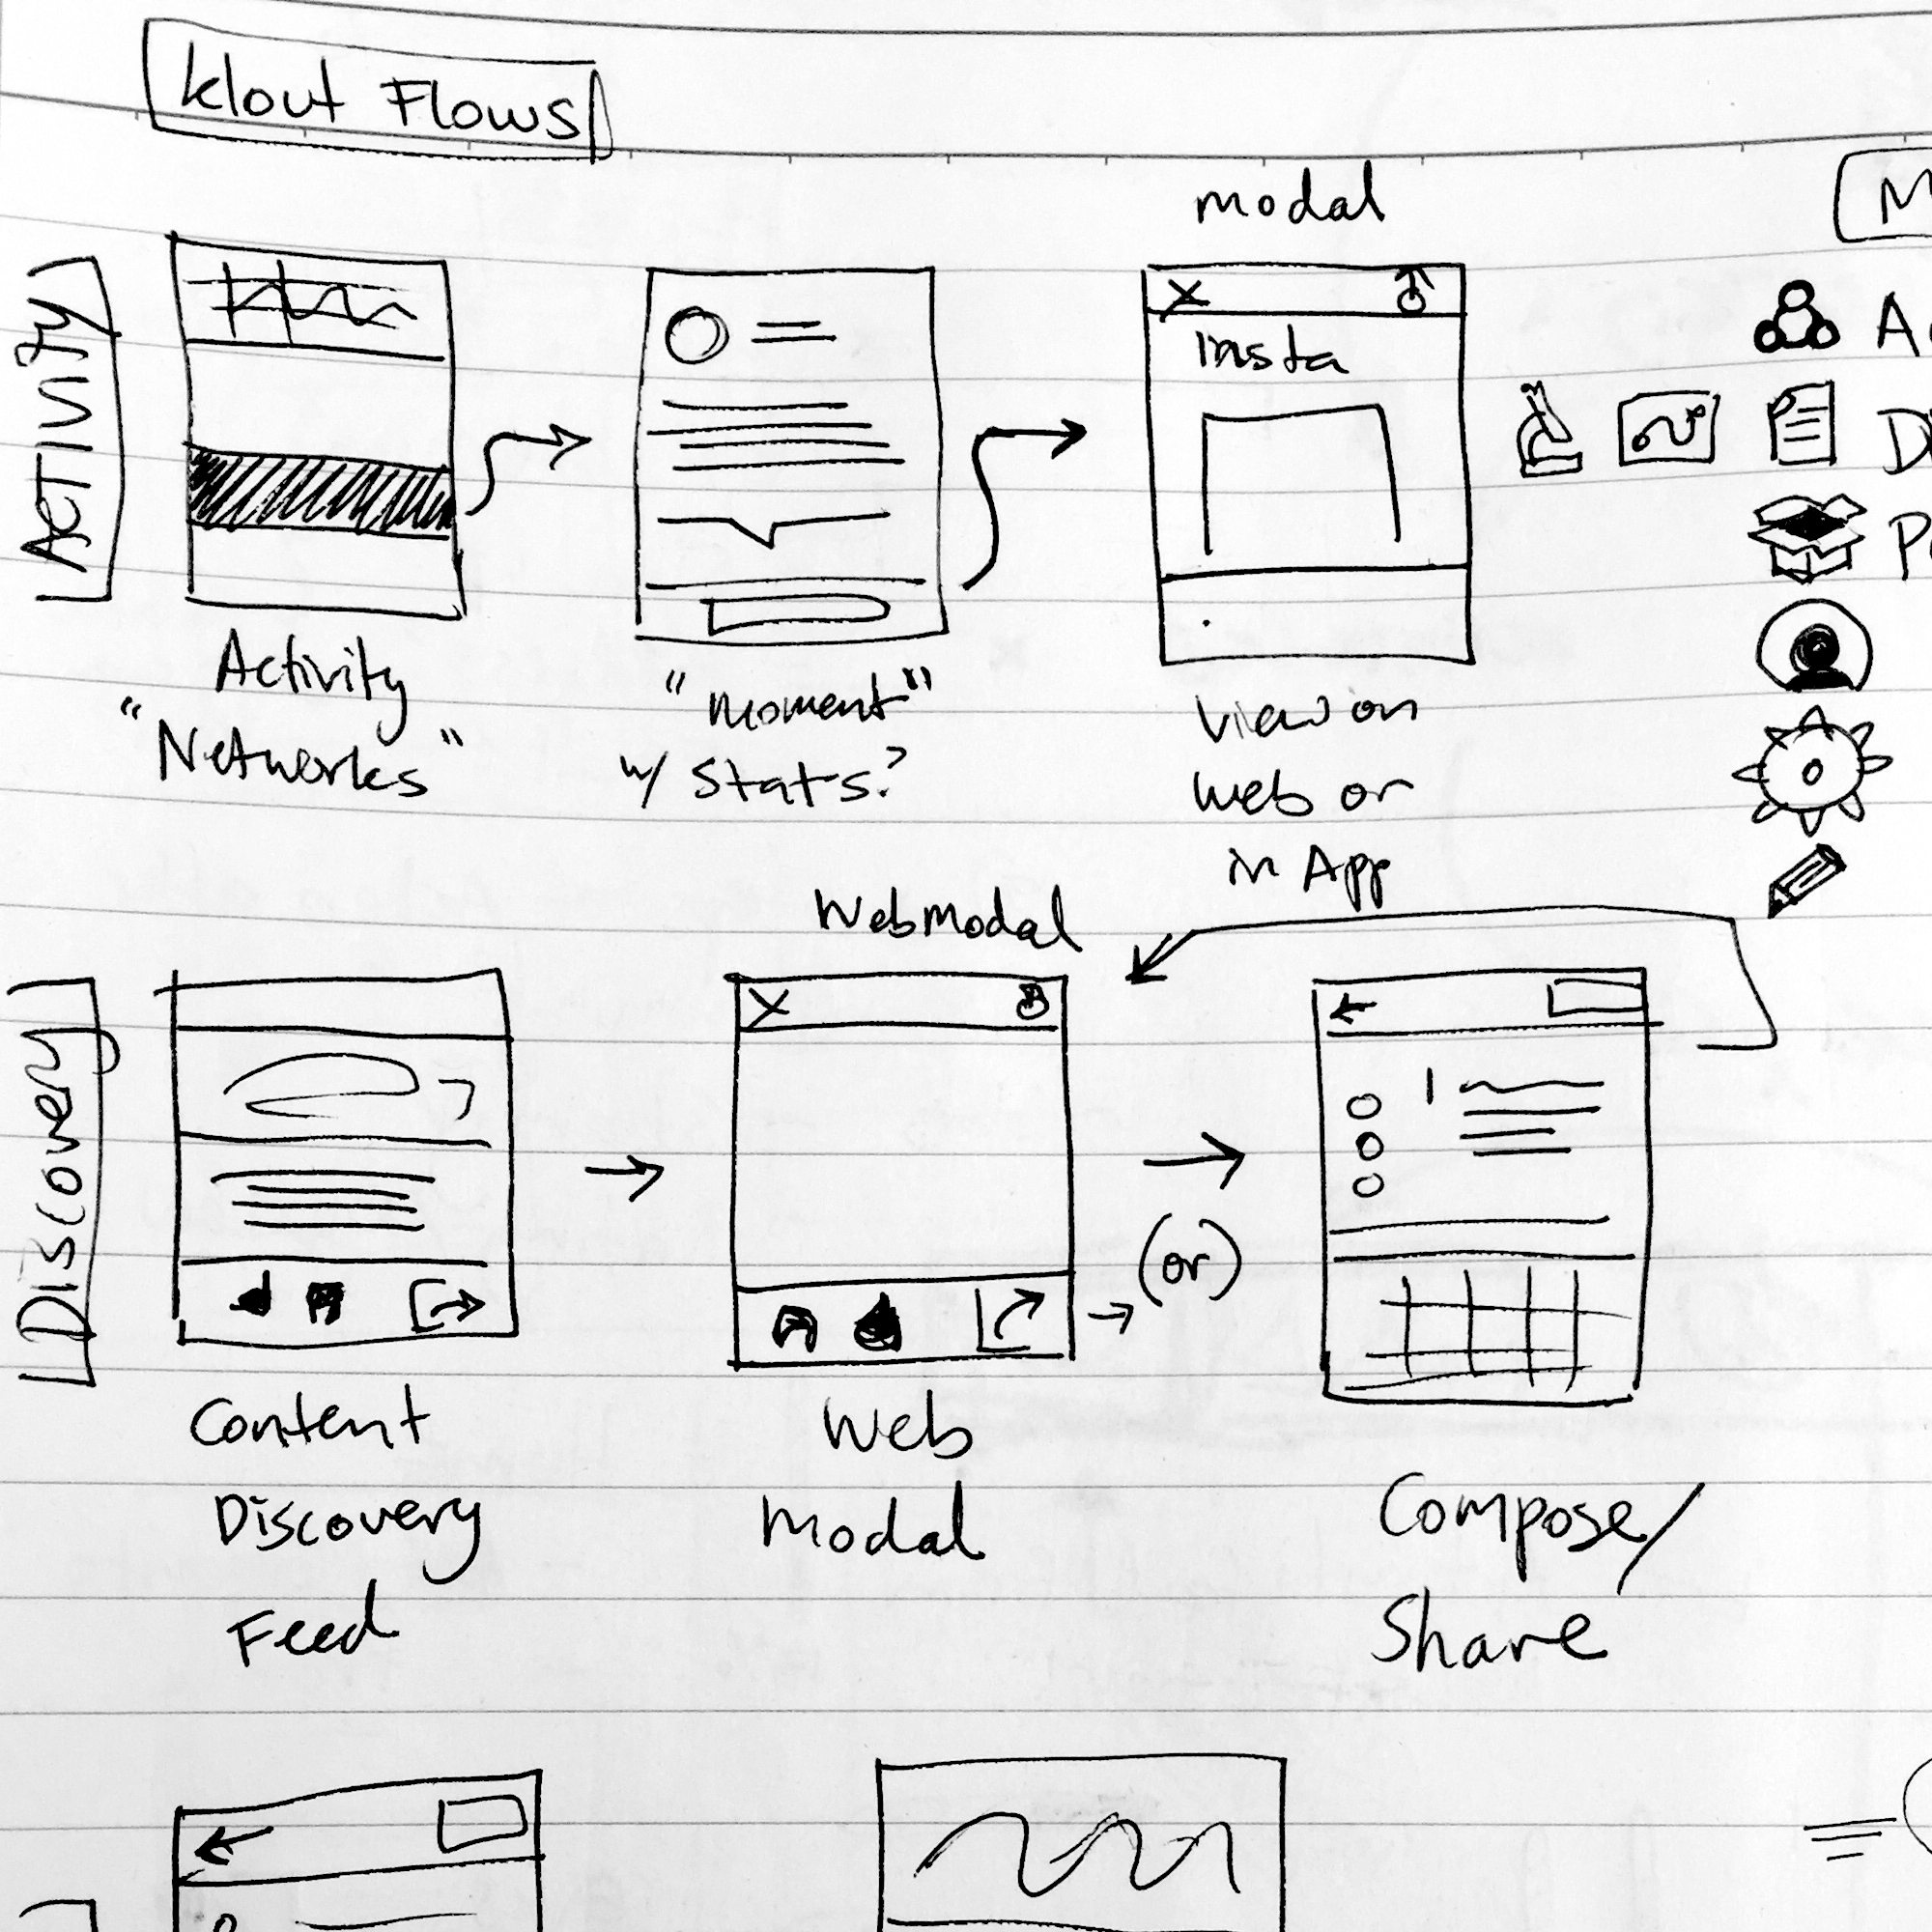 Klout Flows
modal
M
Activity
insta
A
D
P
Activity
"Networks"
"moment"
w/ Stats?
View on
web or
in App
Web Modal
Discovery
(or)
Content
Discovery
Feed
Web
Modal
Compose/
Share